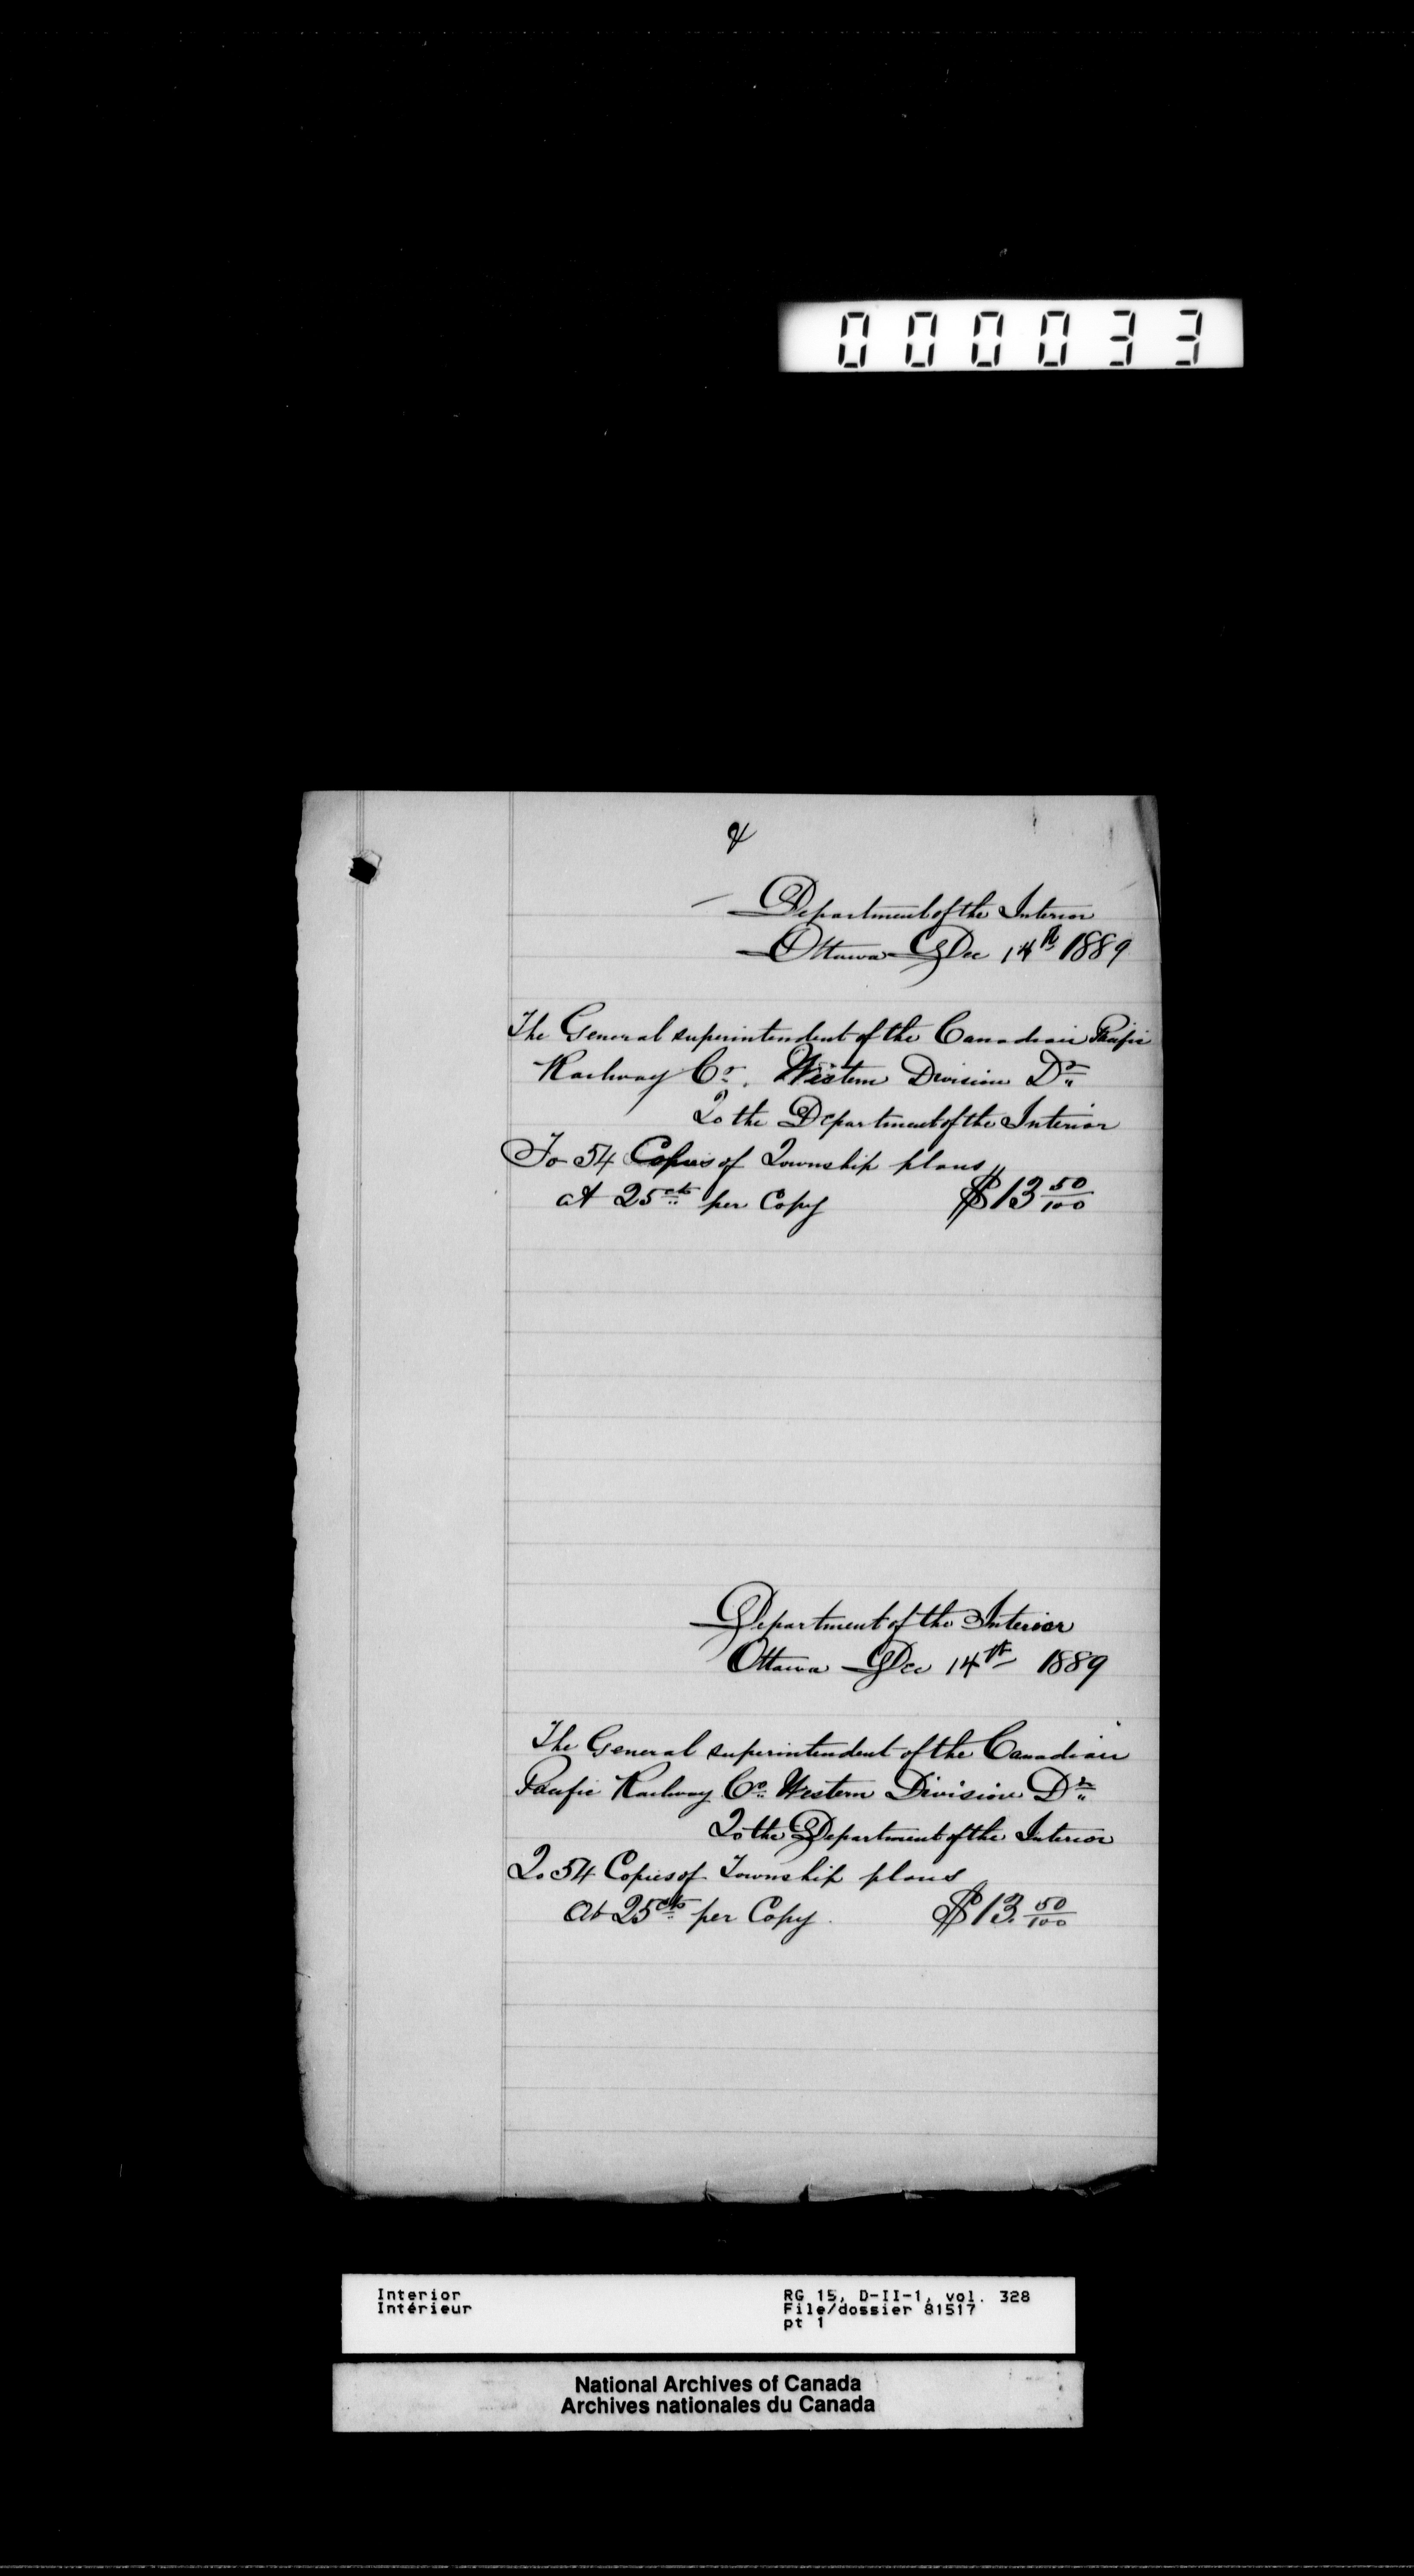 000033
Department of the Interior
Ottawa Dec 14th 1889
The General superintendent of the Canadian Pacific
Railway Co. Western Division Dr
To the Department of the Interior
To 54 Copies of Township plans
at 25cts per Copy $13 50/100
Department of the Interior
Ottawa Dec 14th 1889
The General superintendent of the Canadian
Pacific Railway Co. Western Division Dr
To the Department of the Interior
To 54 Copies of Township plans
at 25cts per Copy. $13. 50/100
Interior RG 15, D-II-1, vol. 328
Intérieur File/dossier 81517
pt 1
National Archives of Canada
Archives nationales du Canada